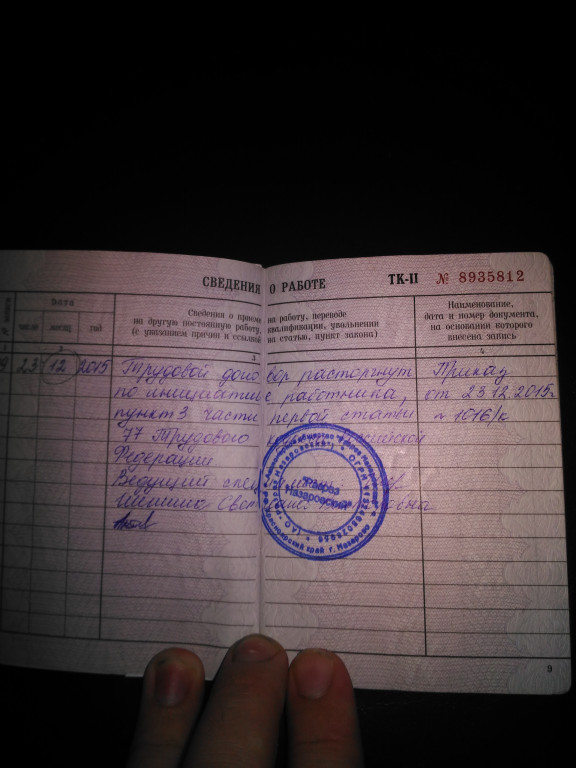 СВЕДЕНИЯ О РАБОТЕ ТК-II № 8935812
Дата
число месяц год
Сведения о приеме на работу, переводе
на другую постоянную работу, квалификации, увольнении
(с указанием причин и ссылкой на статью, пункт закона)
Наименование,
дата и номер документа,
на основании которого
внесена запись
2 3 4
9 23 12 2015 Трудовой договор расторгнут Приказ
по инициативе работника, от 23.12.2015г
пункт 3 части первой статьи № 1016/к
77 Трудового
Федерации
Ведущий
"Разрез
Назаровский"
Красноярский край г. Назарово
9